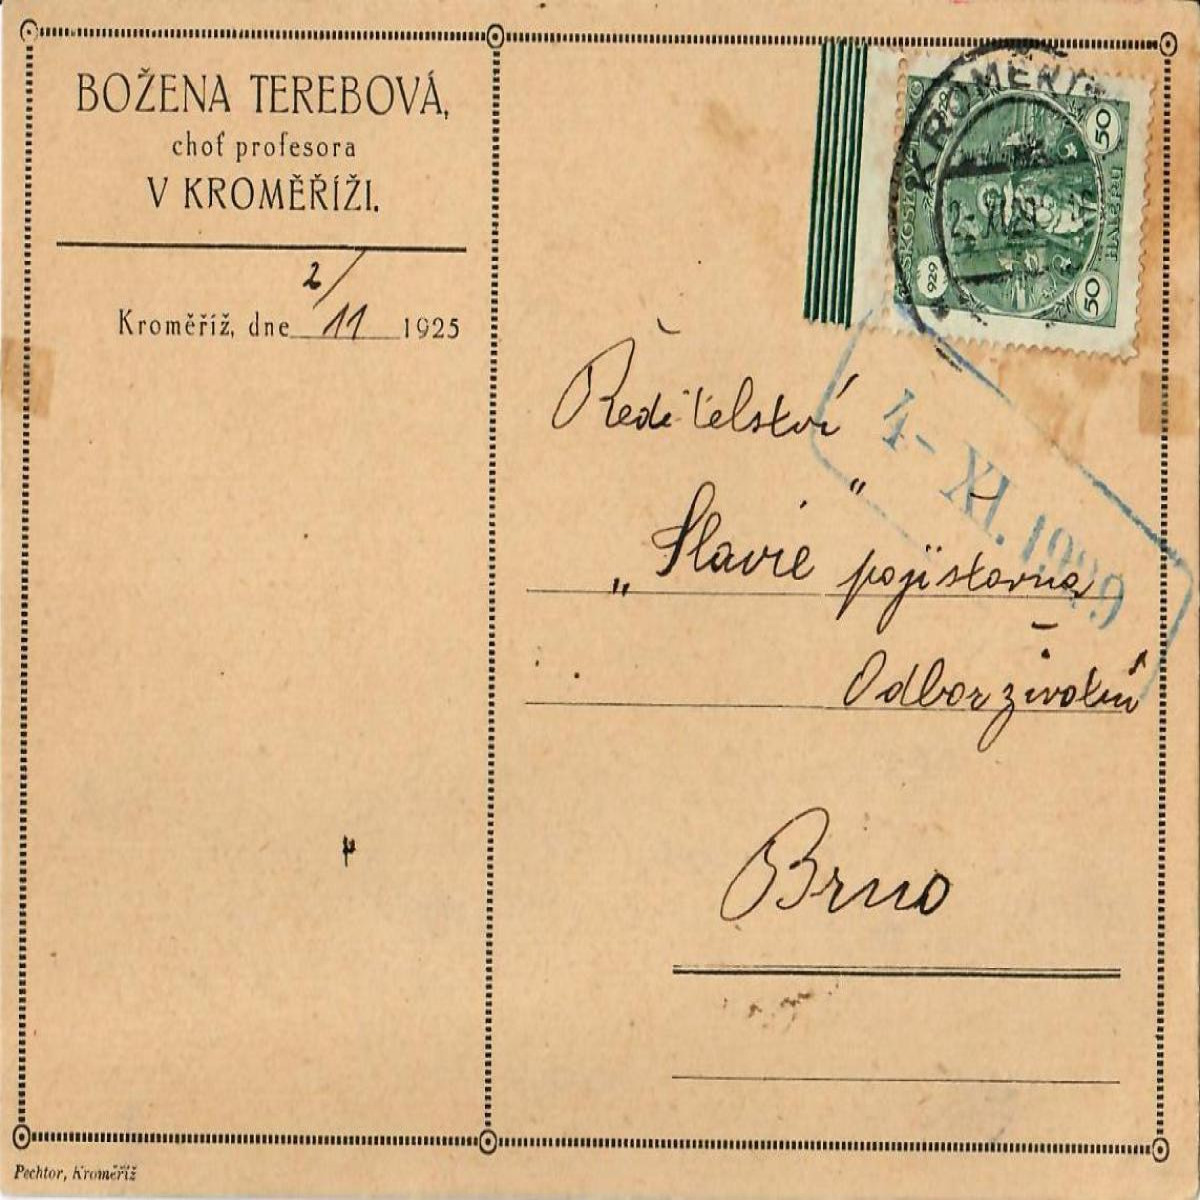 BOŽENA TEREBOVÁ,
choť profesora
V KROMĚŘÍŽI.
Kroměříž, dne 2/11 1925
KROMĚŘÍŽ
2.XI.29
929
50
50
HALÉŘŮ
4- XI. 1929
Ředitelství
„Slavie" pojišťovna
Odbor životní
Brno
Pechtor, Kroměříž